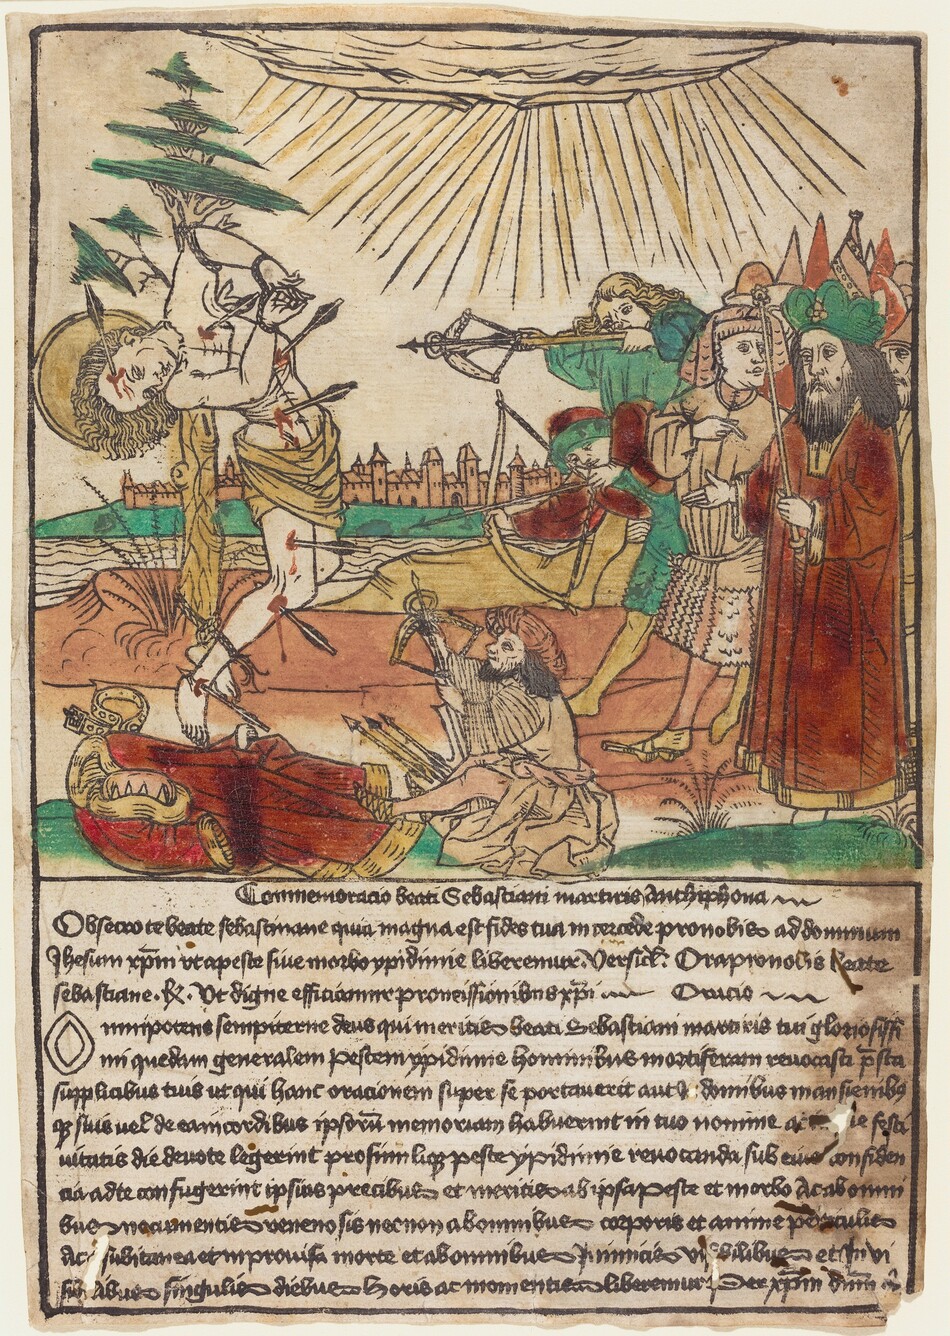 Commemoracio beati Sebastiani martiris Anthiphona
Obsecro te beate sebastiane quia magna est fides tua intercede pro nobis ad dominum
Jhesum xp̄m vt a peste siue morbo ypidimie liberemur. Versicl: Ora pro nobis Beate
sebastiane. R. Ut digne efficiamur promissionibus xp̄i Oracio
Omnipotens sempiterne deus qui meritis beati Sebastiani martiris tui gloriosissi
mi quedam generalem pestem ypidimie hominibus mortiferam reuocasti p̄sta
supplicibus tuis ut qui hanc oracionem super se portauerit aut domibus mansionibus
suis uel de eam cordibus ipsorū memoriam habuerint in tuo nomine festi
uitatis die deuote legerint peste ypidimie reuocanda sub confiden
cia ad te confugerint ipsius precibus et meritis ab ipsa peste et morbo Ac ab omni
bus nocumentis venenosis necnon ab omnibus corporis et anime periculis
Ac subitanea et inprouisa morte et ab omnibus Inimicis visibilibus et Invi
sibilibus singulis diebus horis ac momentis liberemur Per xp̄m